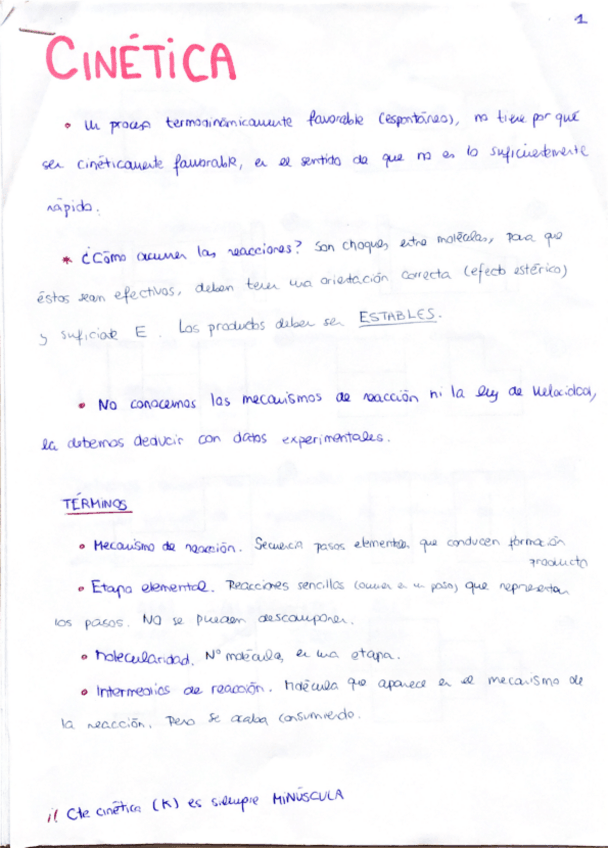 1
CINÉTICA
• Un proceso termodinámicamente favorable (espontáneo), no tiene por qué
ser cinéticamente favorable, en el sentido de que no es lo suficientemente
rápido.
* ¿Cómo ocurren las reacciones? Son choques entre moléculas, para que
éstos sean efectivos, deben tener una orientación correcta (efecto estérico)
y suficiente E. Los productos deben ser ESTABLES.
• No conocemos los mecanismos de reacción ni la ley de velocidad,
la debemos deducir con datos experimentales.
TÉRMINOS
• Mecanismo de reacción. Secuencia pasos elementales que conducen formación
producto
• Etapa elemental. Reacciones sencillas (ocurren en un paso) que representan
los pasos. NO se pueden descomponer.
• Molecularidad. Nº moléculas en una etapa.
• Intermedios de reacción. Molécula que aparece en el mecanismo de
la reacción. Pero se acaba consumiendo.
¡! Cte cinética (K) es siempre MINÚSCULA